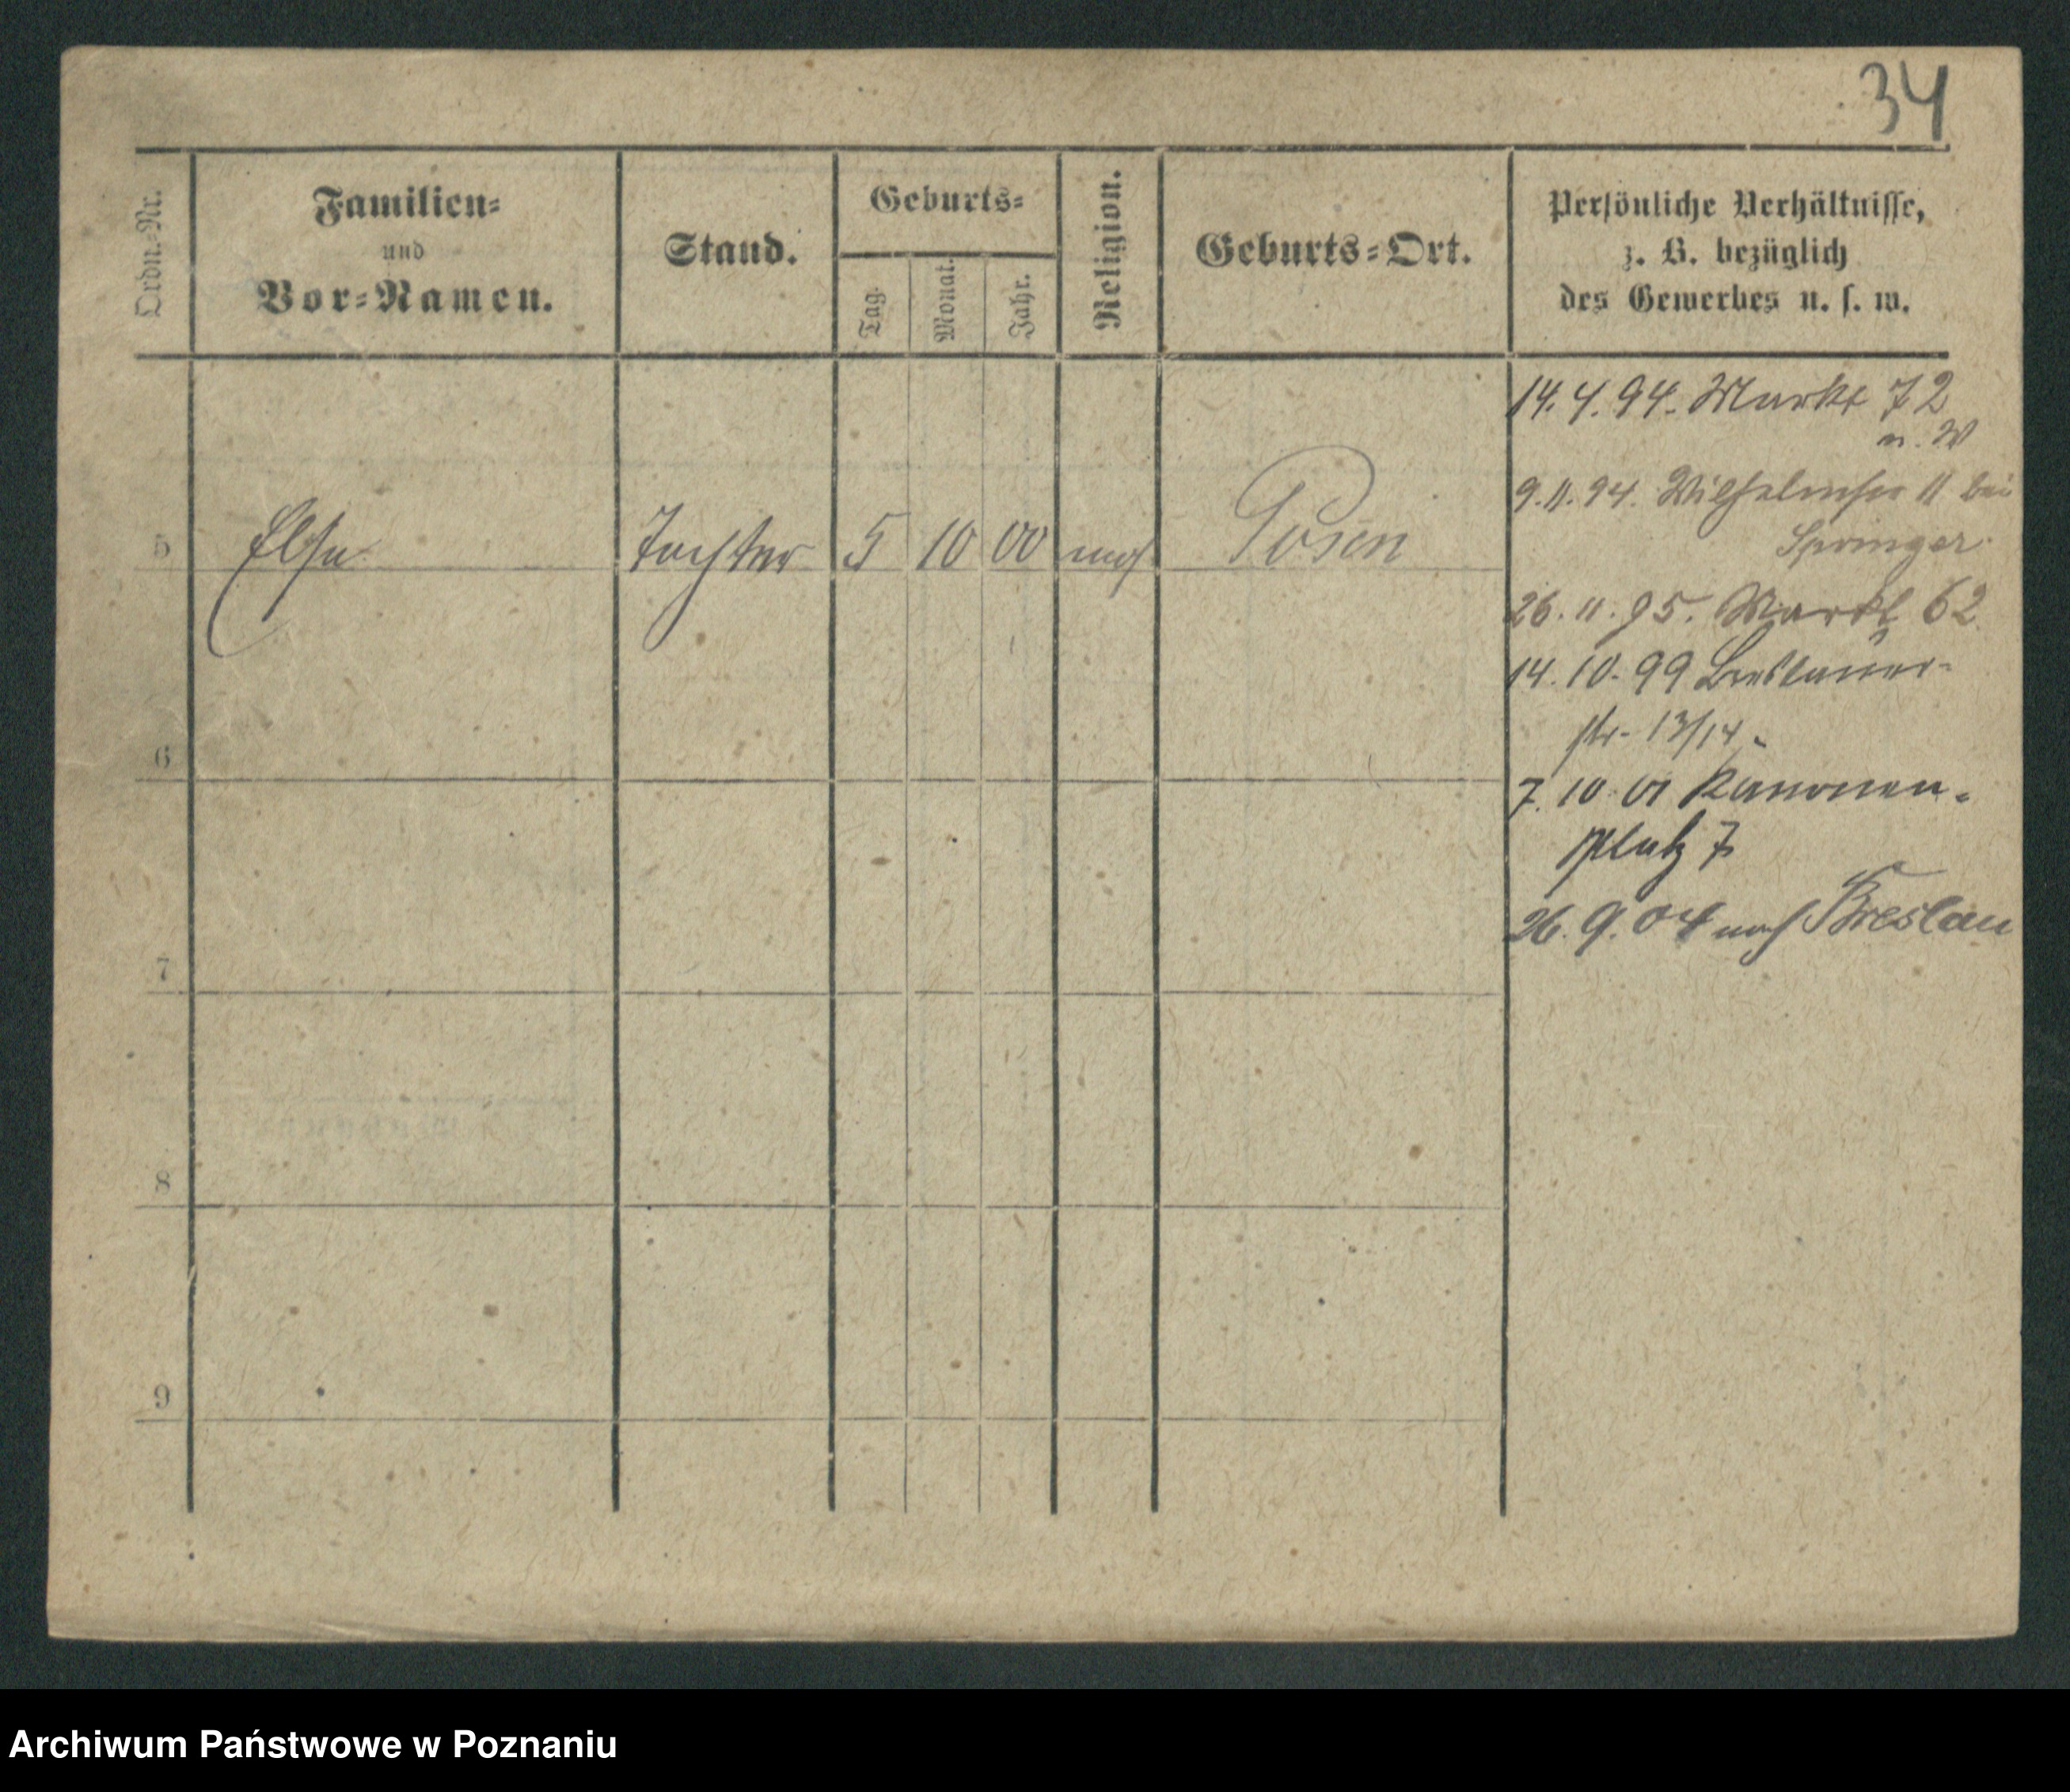 34
Ordn.-Nr.
Familien-
und
Vor-Namen.
Stand.
Geburts-
Tag.
Monat.
Jahr.
Religion.
Geburts-Ort.
Persönliche Verhältnisse,
z. B. bezüglich
des Gewerbes u. s. w.
14. 4. 94. Markt 72
9. 11. 94. Wilhelmstr 11 bei
Springer
5 Else Tochter 5 10 00 Posen
26. 11. 95. Markt 62
14. 10. 99 Breslauer-
str. 13/14.
6
7. 10 01 Kanonen-
platz 7
26. 9. 04 nach Breslau
7
8
9
Archiwum Państwowe w Poznaniu